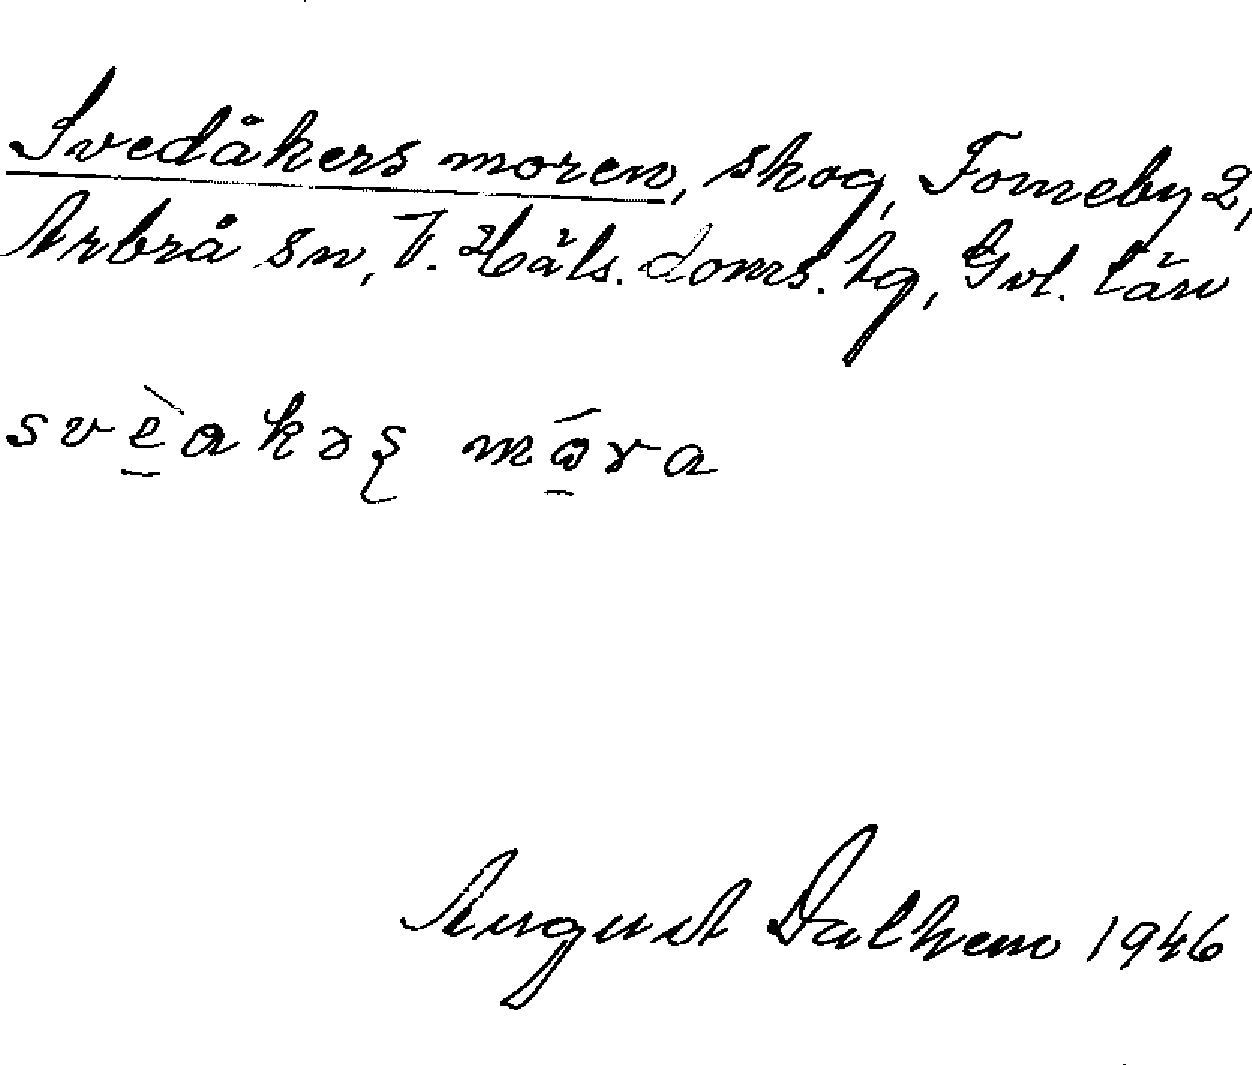 Svedåkers moren, skog, Fomeby 2,
Arbrå sn, V. Häls. doms. hg, Gvl. län
svèakəʂ mɷ́ra
August Dalhem 1946